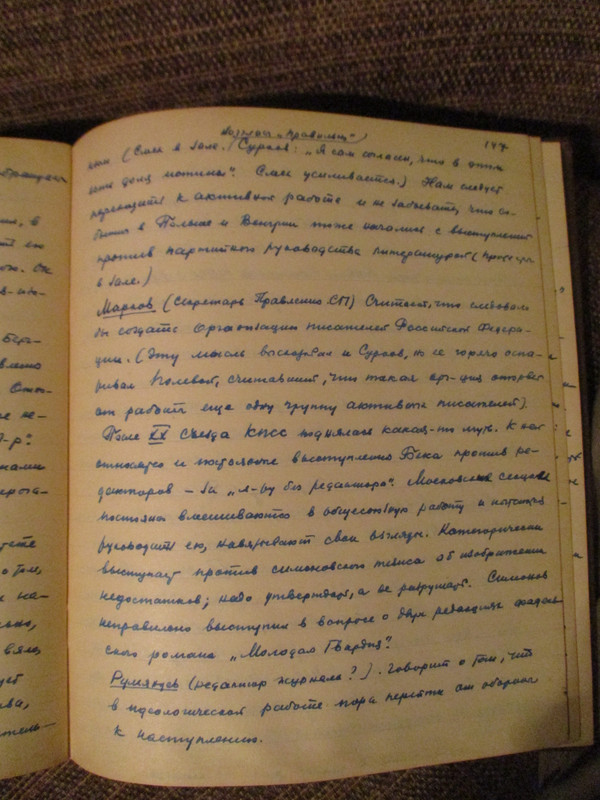 возгласы „правильно“) 147
(Смех в зале. Сурков: „Я сам согласен, что в этом
можно“. Смех усиливается.) Нам следует
переходить к активной работе и не забывать, что со-
бытия в Польше и Венгрии тоже начались с выступлений
против партийного руководства литературой (
в зале.)
Марков (Секретарь Правления СП) Считает, что следовало
бы создать Организацию писателей Российской Федера-
ции. (Эту мысль высказывал и Сурков, но ее горячо оспа-
ривал Полевой, считавший, что такая орг-ция оторвет
от работы еще одну группу активных писателей).
После XX Съезда КПСС поднялась какая-то муть. К ней
относятся и выступления Бека против ре-
дакторов – за „ без редактора“. Московские
постоянно вмешиваются в общественную работу и
руководить ею, навязывают свои взгляды. Категорически
выступает против симоновского тезиса об изображении
недостатков; надо утверждать, а не разрушать. Симонов
неправильно выступил в вопросе о двух редакциях фадеев-
ского романа „Молодая Гвардия“.
Румянцев (редактор журнала ?). Говорит о том, что
в идеологической работе пора перейти от обороны
к наступлению.